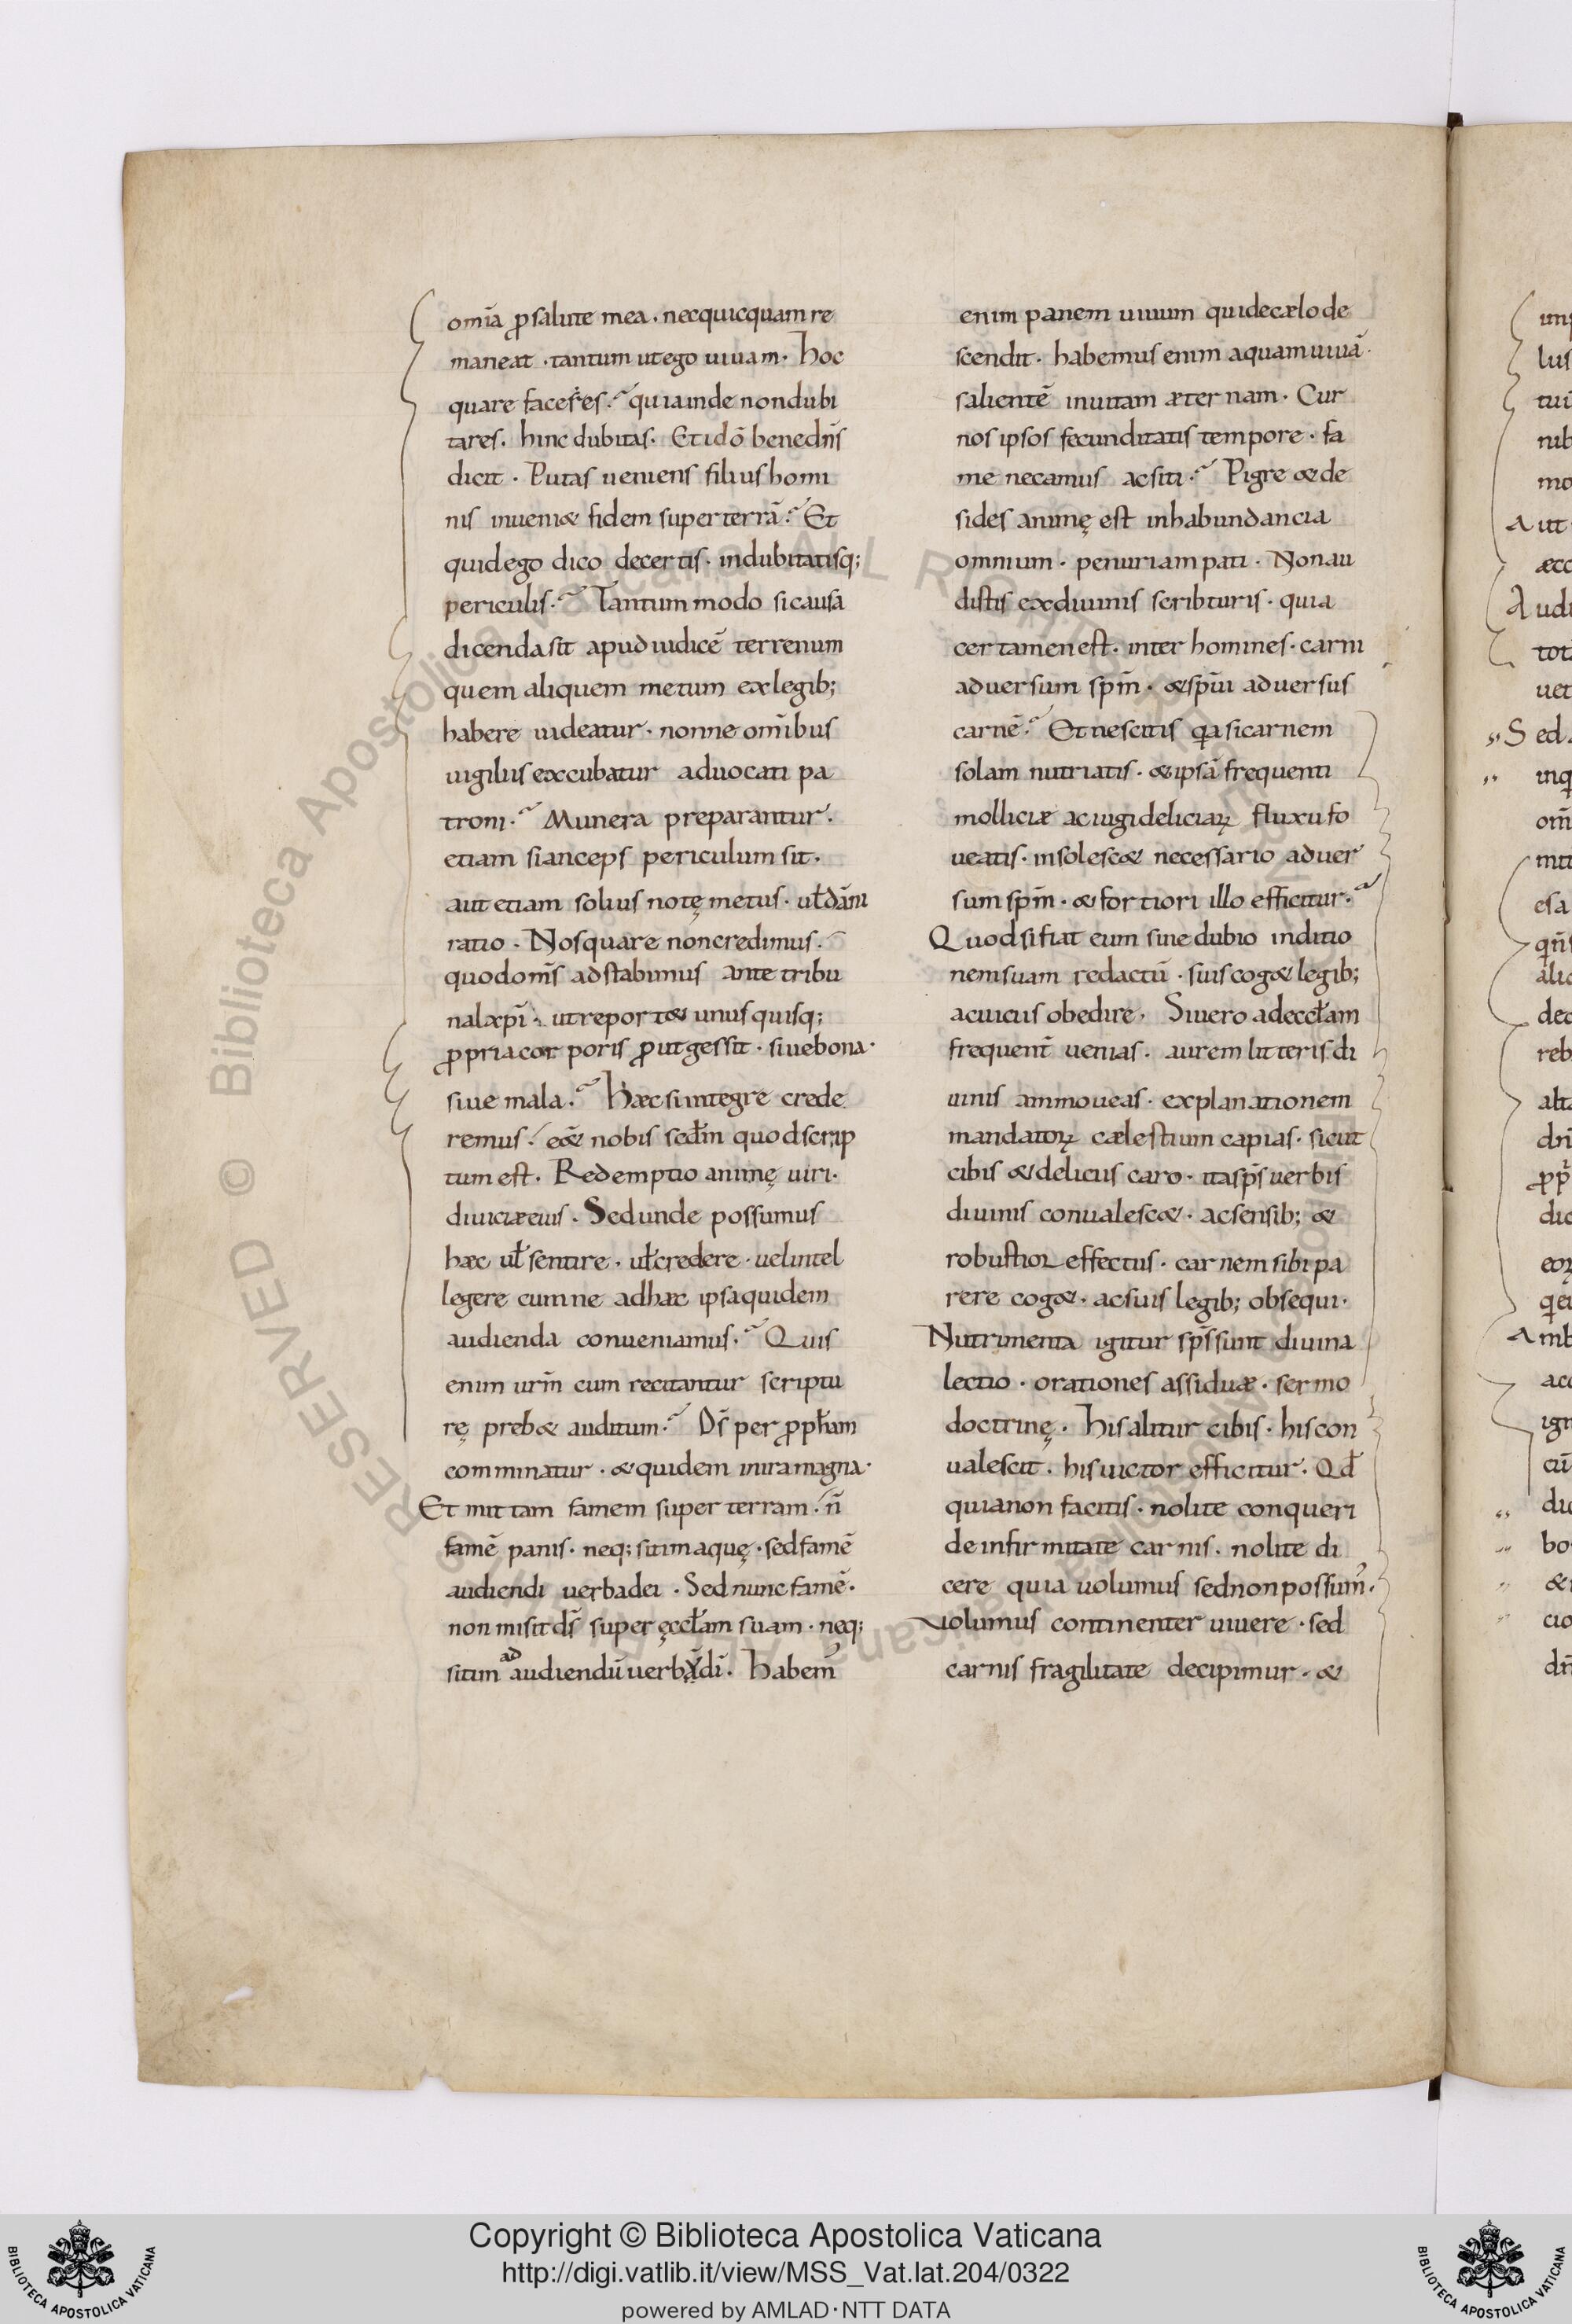 omīa ꝓsalute mea · necquicquam re
maneat · tantum utego uiuam · hoc
quare faceres · quiainde nondubi
tares · hinc dubitas · Et idō benedn̄s
dicit · Putas ueniens filiushomi
nis inueni& fidem superterrā · Et
quidego dico decertis · indubitatisq;
periculis · Tantummodo sicausa
dicendasit apud iudicē terrenum
quem aliquem metum exlegib;
habere uideatur · nonne om̄ibus
uigiliis excubatur aduocati pa
troni · Munera preparantur ·
etiam sianceps periculum sit ·
aut etiam solius notę metus · ul̄
ratio · Nosquare noncredimus ·
quodom̄s adstabimus ante tribu
nalxp̄i · utreport& unusquisq;
ꝓpriacor poris ꝓutgessit · siuebona ·
siue mala · Hæcsiintegre crede
remus · nobis sed̄m quodscrip
tum est · Redemptio animę uiri ·
diuiciæeius · Sedunde possumus
hæc ul̄ sentire · ul̄credere · uelintel
legere cumne adhæc ipsaquidem
audienda conueniamus · Quis
enim ur̄m cum recitantur scriptu
rę preb& auditum · D̄s per ꝓph̄am
comminatur · &quidem iniramagna ·
Et mittam famem super terram · n̄
famē panis · neq; sitimaquę · sedfamē
audiendi uerbadei · Sed nunc famē ·
non misit d̄s super ęccl̄am suam · neq;
sitim ad audiendū uerbū dī · Habem̄
enim panem uiuum quidecælo de
scendit · habemus enim aquamuiuā ·
salientē inuitam æternam · Cur
nos ipsos fecunditatis tempore · fa
me necamus acsiti · Pigre &de
sides animę est inhabundancia
omnium · penuriam pati · Nonau
distis exdiuinis scribturis · quia
certamenest · inter homines · carni
aduersum sp̄m · &sp̄ui aduersus
carnē · Et nescitis qa sicarnem
solam nutriatis · &ipsā frequenti
molliciæ ac iugideliciaꝝ fluxu fo
ueatis · insolesc& necessario aduer
sum sp̄m · &fortiori illo efficitur ·
Quodsifiat eum sine dubio inditio
nemsuam redactū · suiscog& legib;
acuicus obedire · Siuero adeccl̄am
frequent̄ uenias · aurem litteris di
uinis ammoueas · explanationem
mandatoꝝ cælestium capias · sicut
cibis &deliciis caro · itasp̄s uerbis
diuinis conualesc& · acsensib; &
robustior effectus · carnem sibi pa
rere cog& · acsuis legib; obsequi ·
Nutrimenta igitur sp̄s sunt diuina
lectio · orationes assiduæ · sermo
doctrinę · Hisalitur cibis · hiscon
ualescit · hisuictor efficitur · Qd̄
quianon facitis · nolite conqueri
de infirmitate carnis · nolite di
cere quia uolumus sednonpossum᾽ ·
uolumus continenter uiuere · sed
carnis fragilitate decipimur · &
lus
nib
Aut
Audi
tot
uet
Sed
inq
om̄
esa
dec
reb
alt
dn̄
dic
Amb
acc
ign
cū
dic
bo
&
cio
dn̄
Biblioteca Apostolica Vaticana ALL RIGHTS RESERVED ©
Copyright © Biblioteca Apostolica Vaticana
http://digi.vatlib.it/view/MSS_Vat.lat.204/0322
powered by AMLAD·NTT DATA
BIBLIOTECA APOSTOLICA VATICANA
BIBLIOTECA APOSTOLICA VATICANA